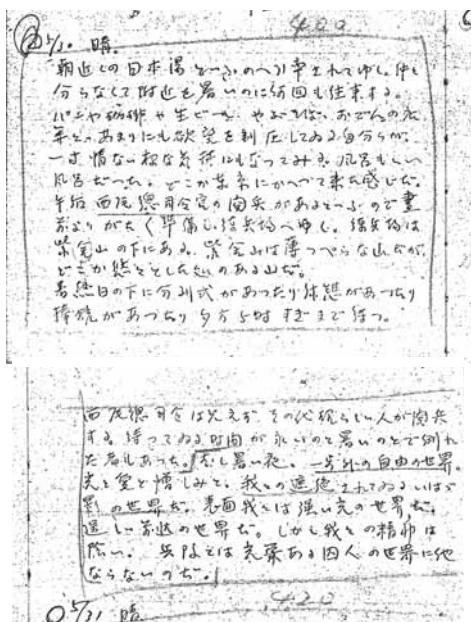 400
5/30 晴.
朝近くの日本湯といふのへ引率されてゆく。仲々
分らなくて附近を暑いのに何回も往来する。
パンや珈琲や生ビール、やきそば、おでんの衣
あまりにも欲望を制圧してゐる自分らが、
一寸情ない様な気持にもなつてみる。風呂もいい
風呂だつた。どこか東京にかへつて来た感じだ。
午后西尾総司令官の閲兵があるといふので昼
前よりがたく準備し練兵場へゆく。練兵場は
紫金山の下にある。紫金山は薄つぺらな山だが、
どこか悠々とした処のある山だ。
炎熱日の下に分列式があつたり休憩があつたり
捧銃があつたり夕方5時すぎまで待つ。
西尾総司令は見えず その代理らしい人が閲兵
する。待つてゐる時間が永いのと暑いのとで倒れ
た者もあつた。むし暑い夜。一歩外の自由の世界。
光と愛と憎しみと。我々の遮絶されてゐるいはゞ
影の世界だ。表面我々は強い光の世界だ。
逞しい 世界だ。しかし我々の精神は
暗い。兵隊とは光栄ある囚人の世界に他
ならないのだ。
420
5/31 晴